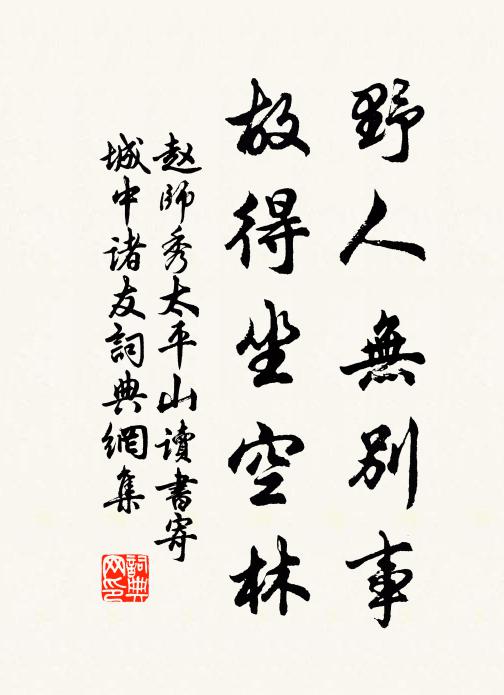 野人無別事
故得坐空林
赵師秀太平山讀書寄
城中诸友詞典網集
詞典网印